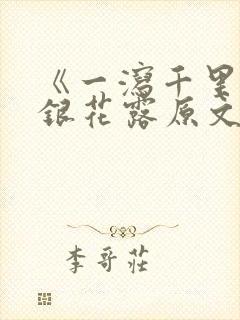 《一瀉千里
銀花露原文
李哥莊